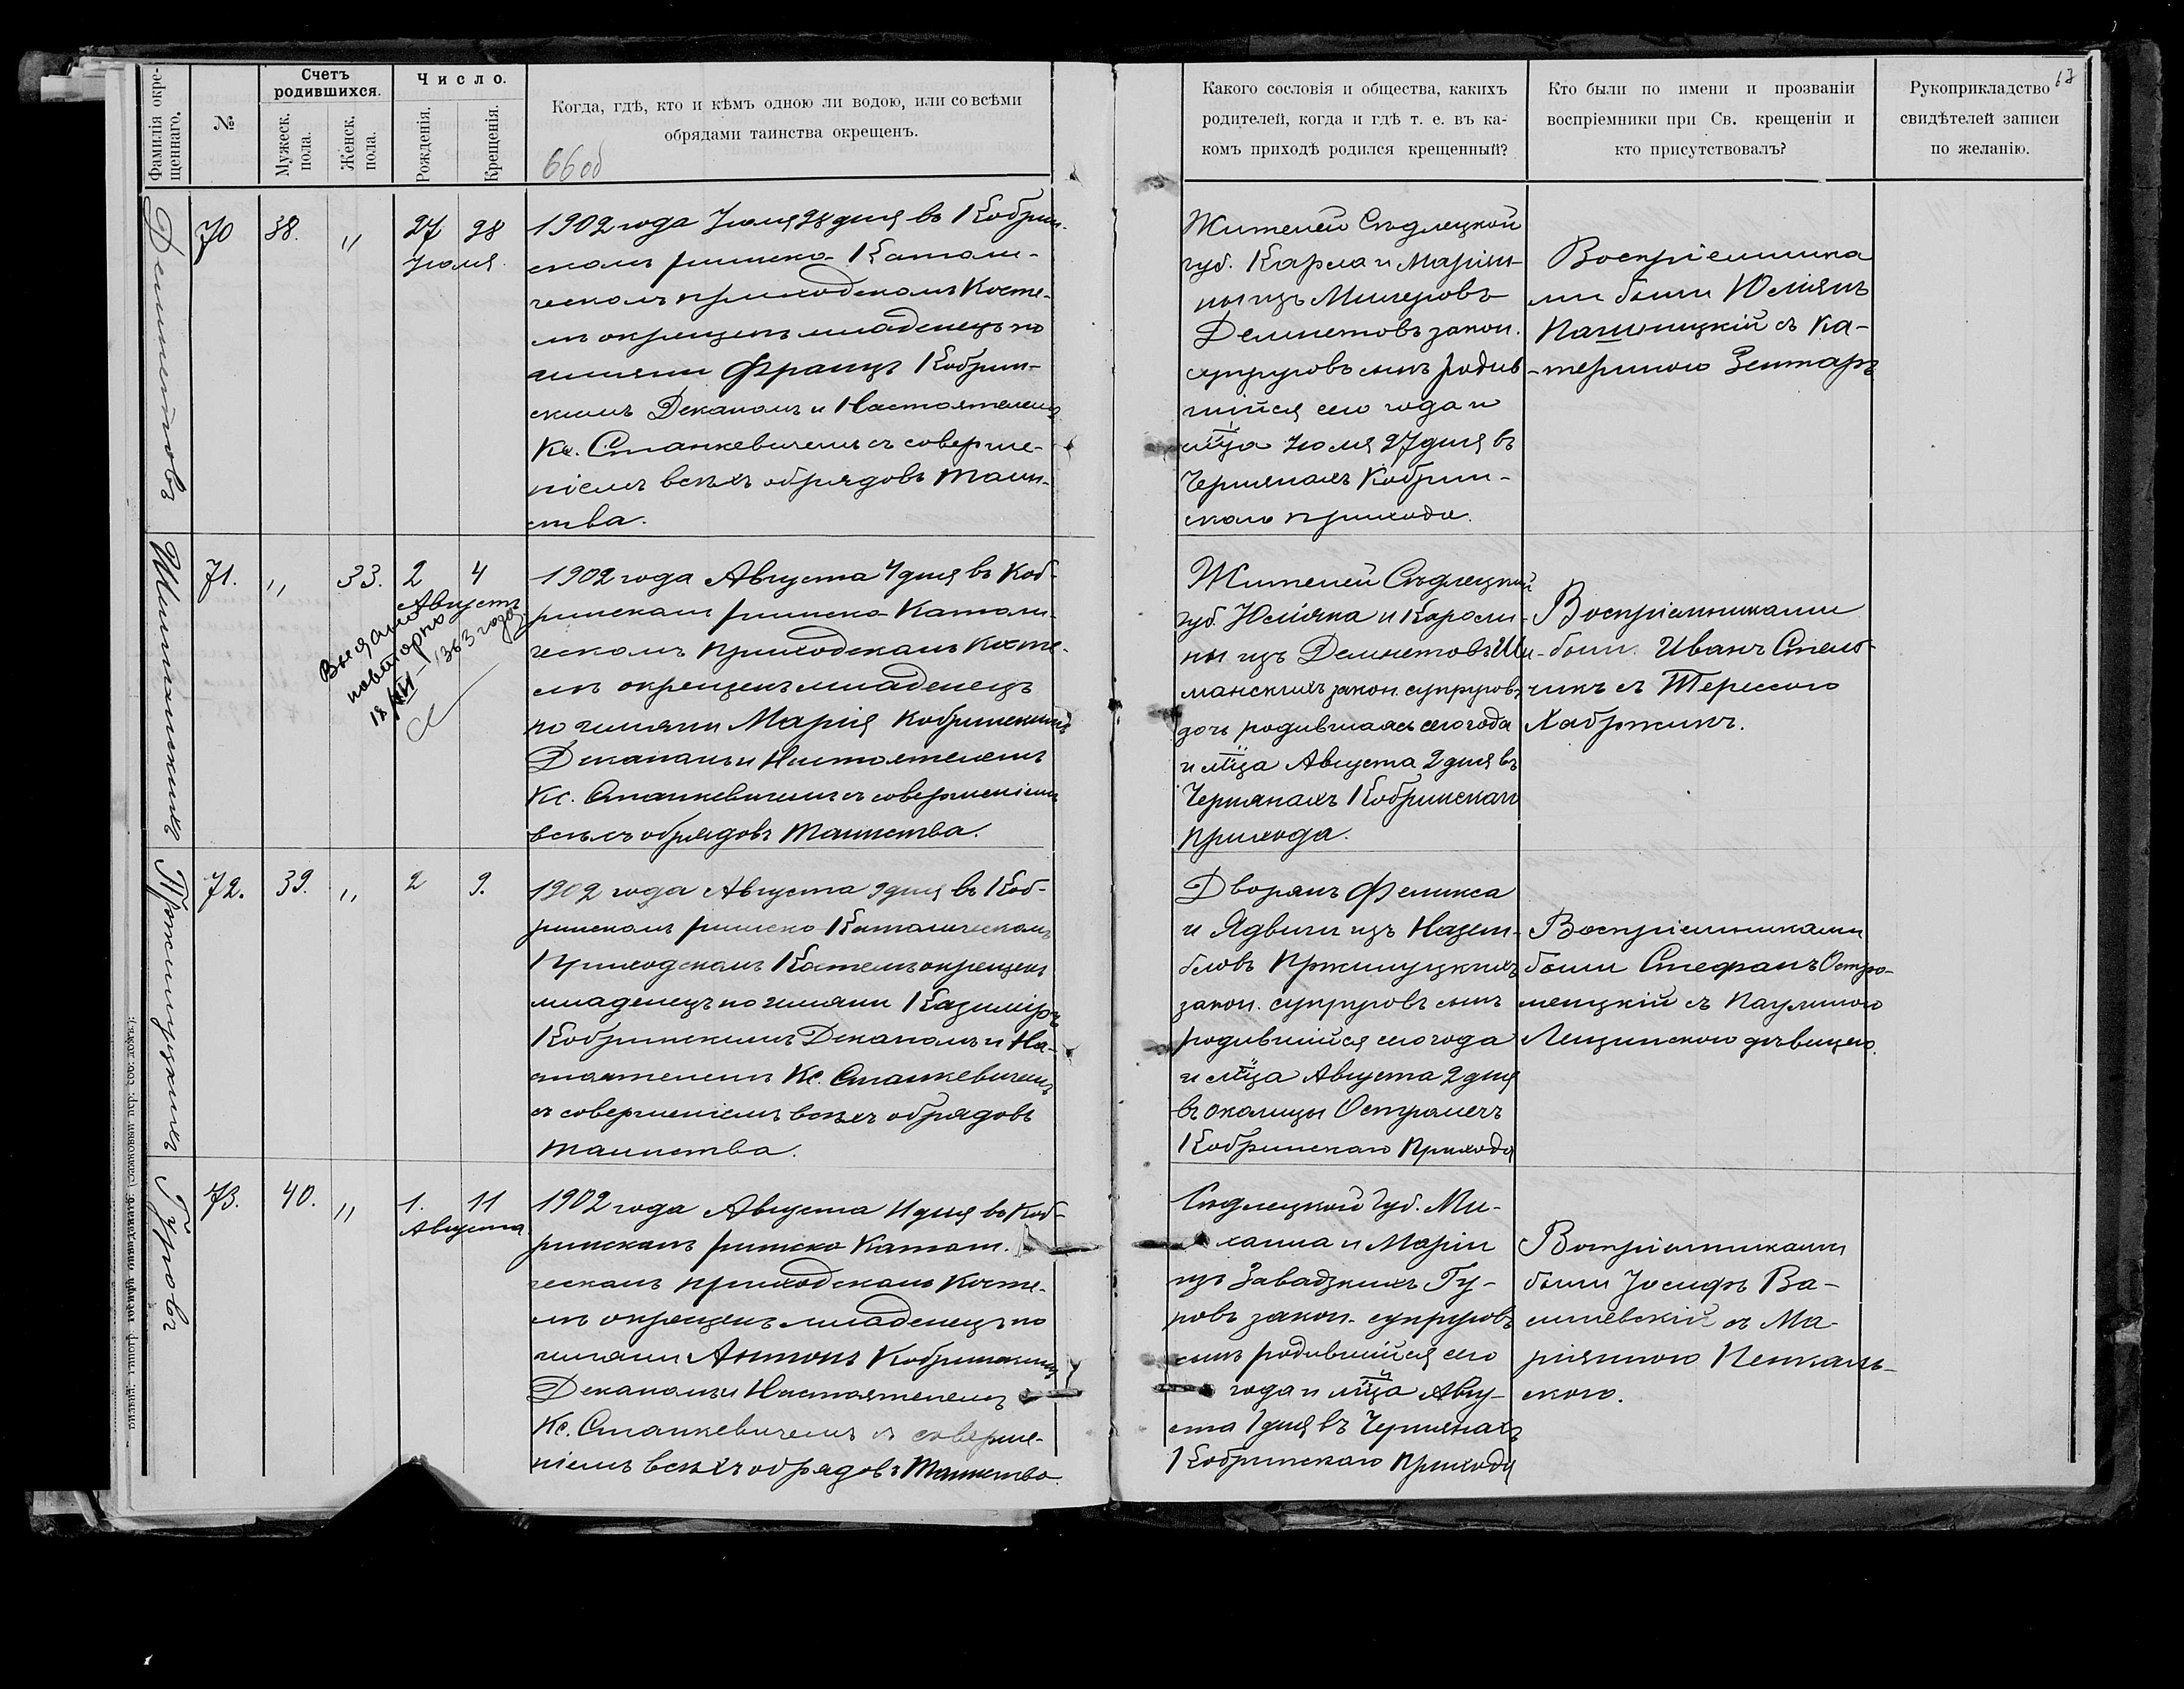 67
Фамилія окре-
щеннаго.
№
Счетъ
родившихся.
Мужеск.
пола.
Женск.
пола.
Число.
Рожденія.
Крещенія.
Когда, гдѣ, кто и кѣмъ одною ли водою, или со всѣми
обрядами таинства окрещенъ.
66 об
Какого сословія и общества, какихъ
родителей, когда и гдѣ т. е. въ ка-
комъ приходѣ родился крещенный?
Кто были по имени и прозваніи
воспріемники при Св. крещеніи и
кто присутствовалъ?
Рукоприкладство
свидѣтелей записи
по желанію.
Демнетовъ
70
38.
"
27
28
Июля
1902 года Июля 28 дня въ Кобрин-
скомъ римско-Католи-
ческомъ приходскомъ Косте-
лѣ окрещенъ младенецъ по
имени Францъ Кобрин-
скимъ Деканомъ и Настоятелемъ
Кс. Станкевичемъ съ соверше-
ніемъ всѣхъ обрядовъ Таин-
ства.
Жителей Сѣдлецкой
губ. Карла и Маріян-
ны изъ Милеровъ
Демнетовъ закон.
супруговъ сынъ родив-
шійся сего года и
мца Июля 27 дня въ
Чернянахъ Кобрин-
скаго прихода.
Воспріемника
ми были Юліянъ
Пашницкій съ Ка-
териною Зентаръ
Шиманскихъ
71.
"
33.
2
4
Августа
Выдано
повторно
18/XII-1963 года
1902 года Августа 4 дня въ Коб-
ринскомъ римско-Католи-
ческомъ приходскомъ Косте-
лѣ окрещенъ младенецъ
по имени Марія Кобринскимъ
Деканомъ и Настоятелемъ
Кс. Станкевичемъ съ совершеніемъ
всѣхъ обрядовъ Таинства.
Жителей Сѣдлецкой
губ. Юліяна и Кароли-
ны изъ Демнетовъ Ши-
манскихъ закон. супруговъ
дочь родившаяся сего года
и мца Августа 2 дня въ
Чернянахъ Кобринскаго
прихода.
Воспріемниками
были Иванъ Стель-
чикъ съ Терессою
Хабржикъ.
Пржилуцкихъ
72.
39.
"
2
9.
1902 года Августа 9 дня въ Коб-
ринскомъ римско-Католическомъ
Приходскомъ Костелѣ окрещенъ
младенецъ по имени Казиміръ
Кобринскимъ Деканомъ и На-
стоятелемъ Кс. Станкевичемъ
съ совершеніемъ всѣхъ обрядовъ
Таинства.
Дворянъ Феликса
и Ядвиги изъ
Пржилуцкихъ
закон. супруговъ сынъ
родившійся сего года
и мца Августа 2 дня
въ околицы Остромечъ
Кобринскаго Прихода
Воспріемниками
были Стефанъ Остро-
мецкій съ Паулиною
Лещинскою дѣвицею.
Гуровъ
73.
40.
"
1.
11
Августа
1902 года Августа 11 дня въ Коб-
ринскомъ римско Катол.
ческомъ приходскомъ Косте-
лѣ окрещенъ младенецъ по
имени Антонъ Кобринскимъ
Деканомъ и Настоятелемъ
Кс. Станкевичемъ съ соверше-
ніемъ всѣхъ обрядовъ Таинства.
Сѣдлецкой Губ. Ми-
хаила и Маріи
изъ Завадзкихъ Гу-
ровъ закон. супруговъ
сынъ родившійся сего
года и мца Авгу-
ста 1 дня въ Чернянахъ
Кобринскаго Прихода
Воспріемниками
были Іосифъ Ва-
силевскій съ Ма-
ріянною Пенкаль-
скою.